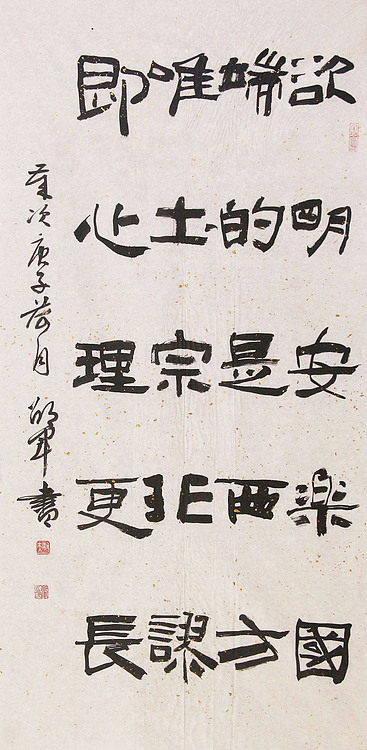 欲明安樂國
端的是西方
唯土宗非謬
即心理更長
歲次庚子荷月 軍書